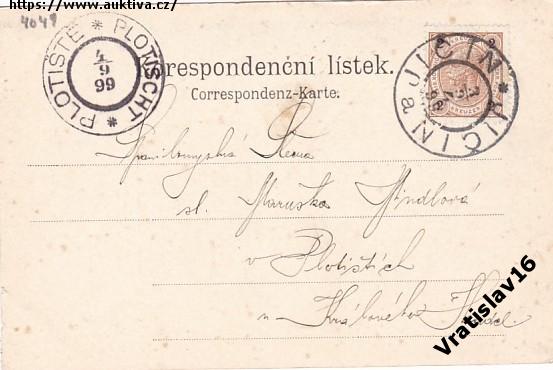 https://www.auktiva.cz/
4049
PLOTIŠTĚ * PLOTISCHT *
4/9
99
Korrespondenční lístek.
Correspondenz-Karte.
JIČÍN * JIČIN a
3
KREUZER
slečna
sl. Maruška
v Plotištích
n Králového Hradce.
Vratislav16